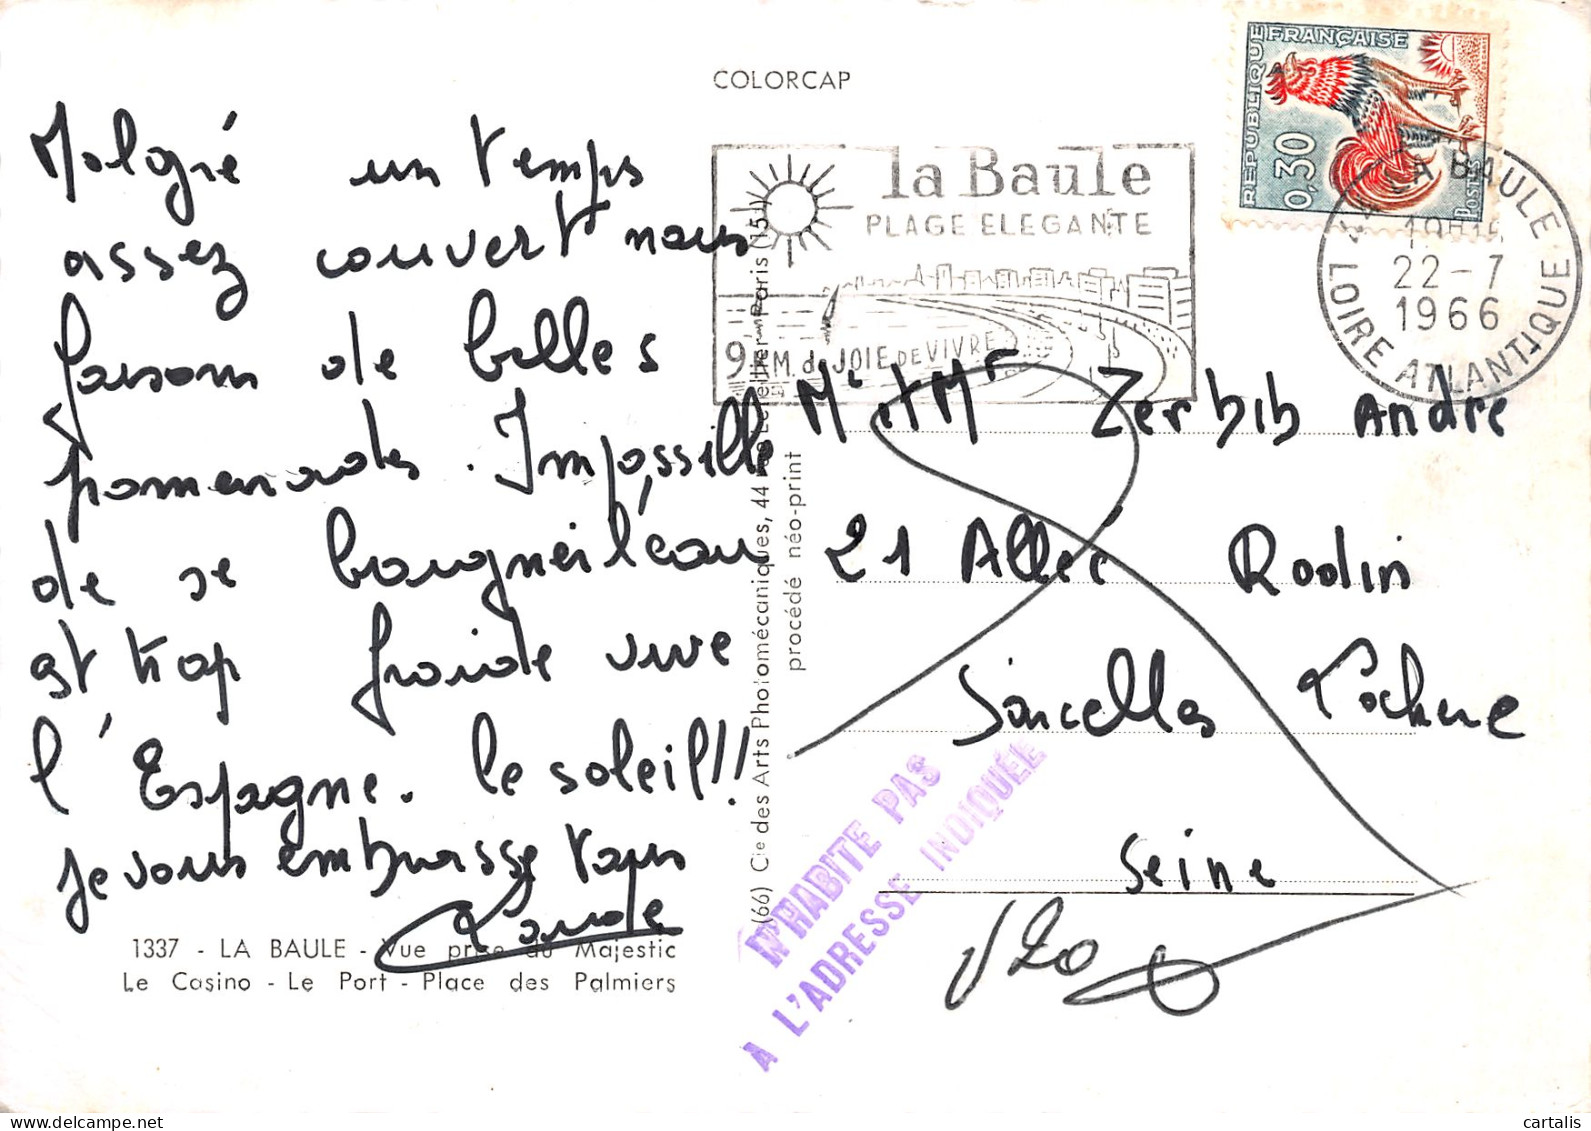 COLORCAP
Malgré un temps
assez couvert nous
faisons de belles
promenades. Impossible
de se baigner l'eau
est trop froide vive
l'Espagne. le soleil!!
je vous embrasse tous
1337 - LA BAULE - Vue prise du Majestic
Le Casino - Le Port - Place des Palmiers
(66) Cie des Arts Photomécaniques, 44 Letellier - Paris (15e)
procédé néo-print
la Baule
PLAGE ELEGANTE
9 KM. de JOIE DE VIVRE
REPUBLIQUE FRANÇAISE
0,30
POSTES
LA BAULE
22-7
1966
LOIRE ATLANTIQUE
Mr et Mme Zerbib André
21 Allée Rodin
Sarcelles Lochère
Seine
N'HABITE PAS
A L'ADRESSE INDIQUÉE
cartalis